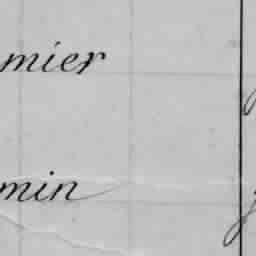 mier
min